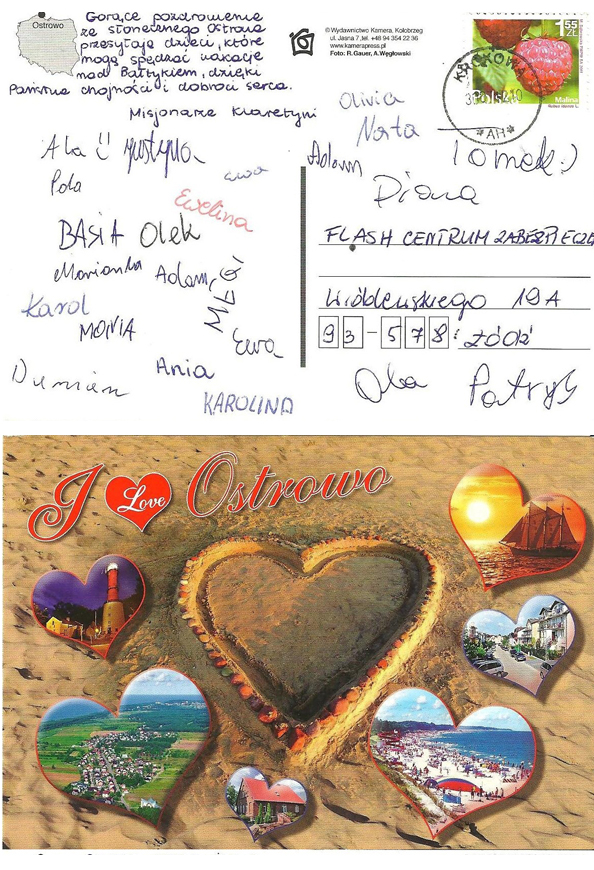 Ostrowo
Gorące pozdrowienie
ze słonecznego Ostrowa
przesyłają dzieci, które
mogą spędzać wakacje
nad Bałtykiem, dzięki
Państwa chojności i dobroci serca.
Misjonarze Klaretyni
© Wydawnictwo Kamera, Kołobrzeg
ul. Jasna 7, tel. +48 94 354 22 36
www.kamerapress.pl
Foto: R.Gauer, A.Węgłowski
1 55
ZŁ
Malina
KROKOWA
*AH*
Olivia
Norta
Adam
Tomek :)
Diana
Ala
Justyna
Ewa
Pola
Ewelina
BASIA Olek
Marianka
Adam
Karol
MONIA
Ewa
Ania
Damian
KAROLINA
FLASH CENTRUM ZABEZPIECZE
Wróblewskiego 19A
93-578 ŁÓDŹ
Ola
Patryk
I Love Ostrowo